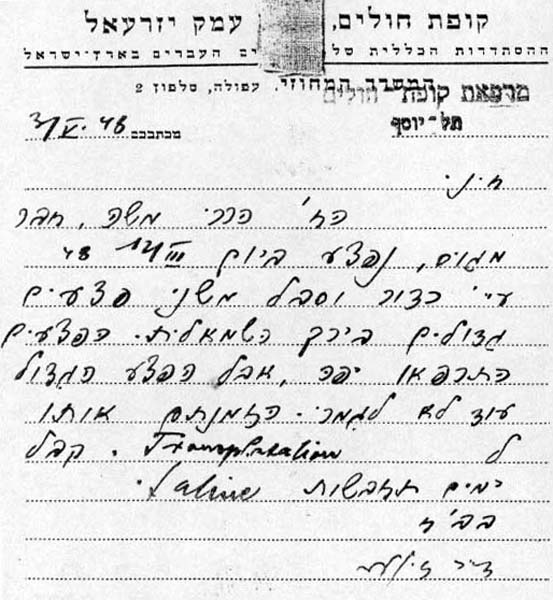 קופת חולים, עמק יזרעאל
ההסתדרות הכללית של ים העברים בארץ־ישראל
המשרד המחוזי. עפולה, טלפון 2
מרפאת קופת־חולים
תל־יוסף
מכתבכם 3/V.48
ח.נ.
הח' הררי משה, חבר
מגויס, נפצע ביום 14/III 48
ע"י כדור וסבל משני פצעים
גדולים בירך השמאלית. הפצעים
התרפאו יפה, אבל הפצע הגדול
עוד לא לגמרי. הזמנתם אותו
ל Transplantation. קבל
ימים תחבשות Saline.
בב"ח
ד"ר